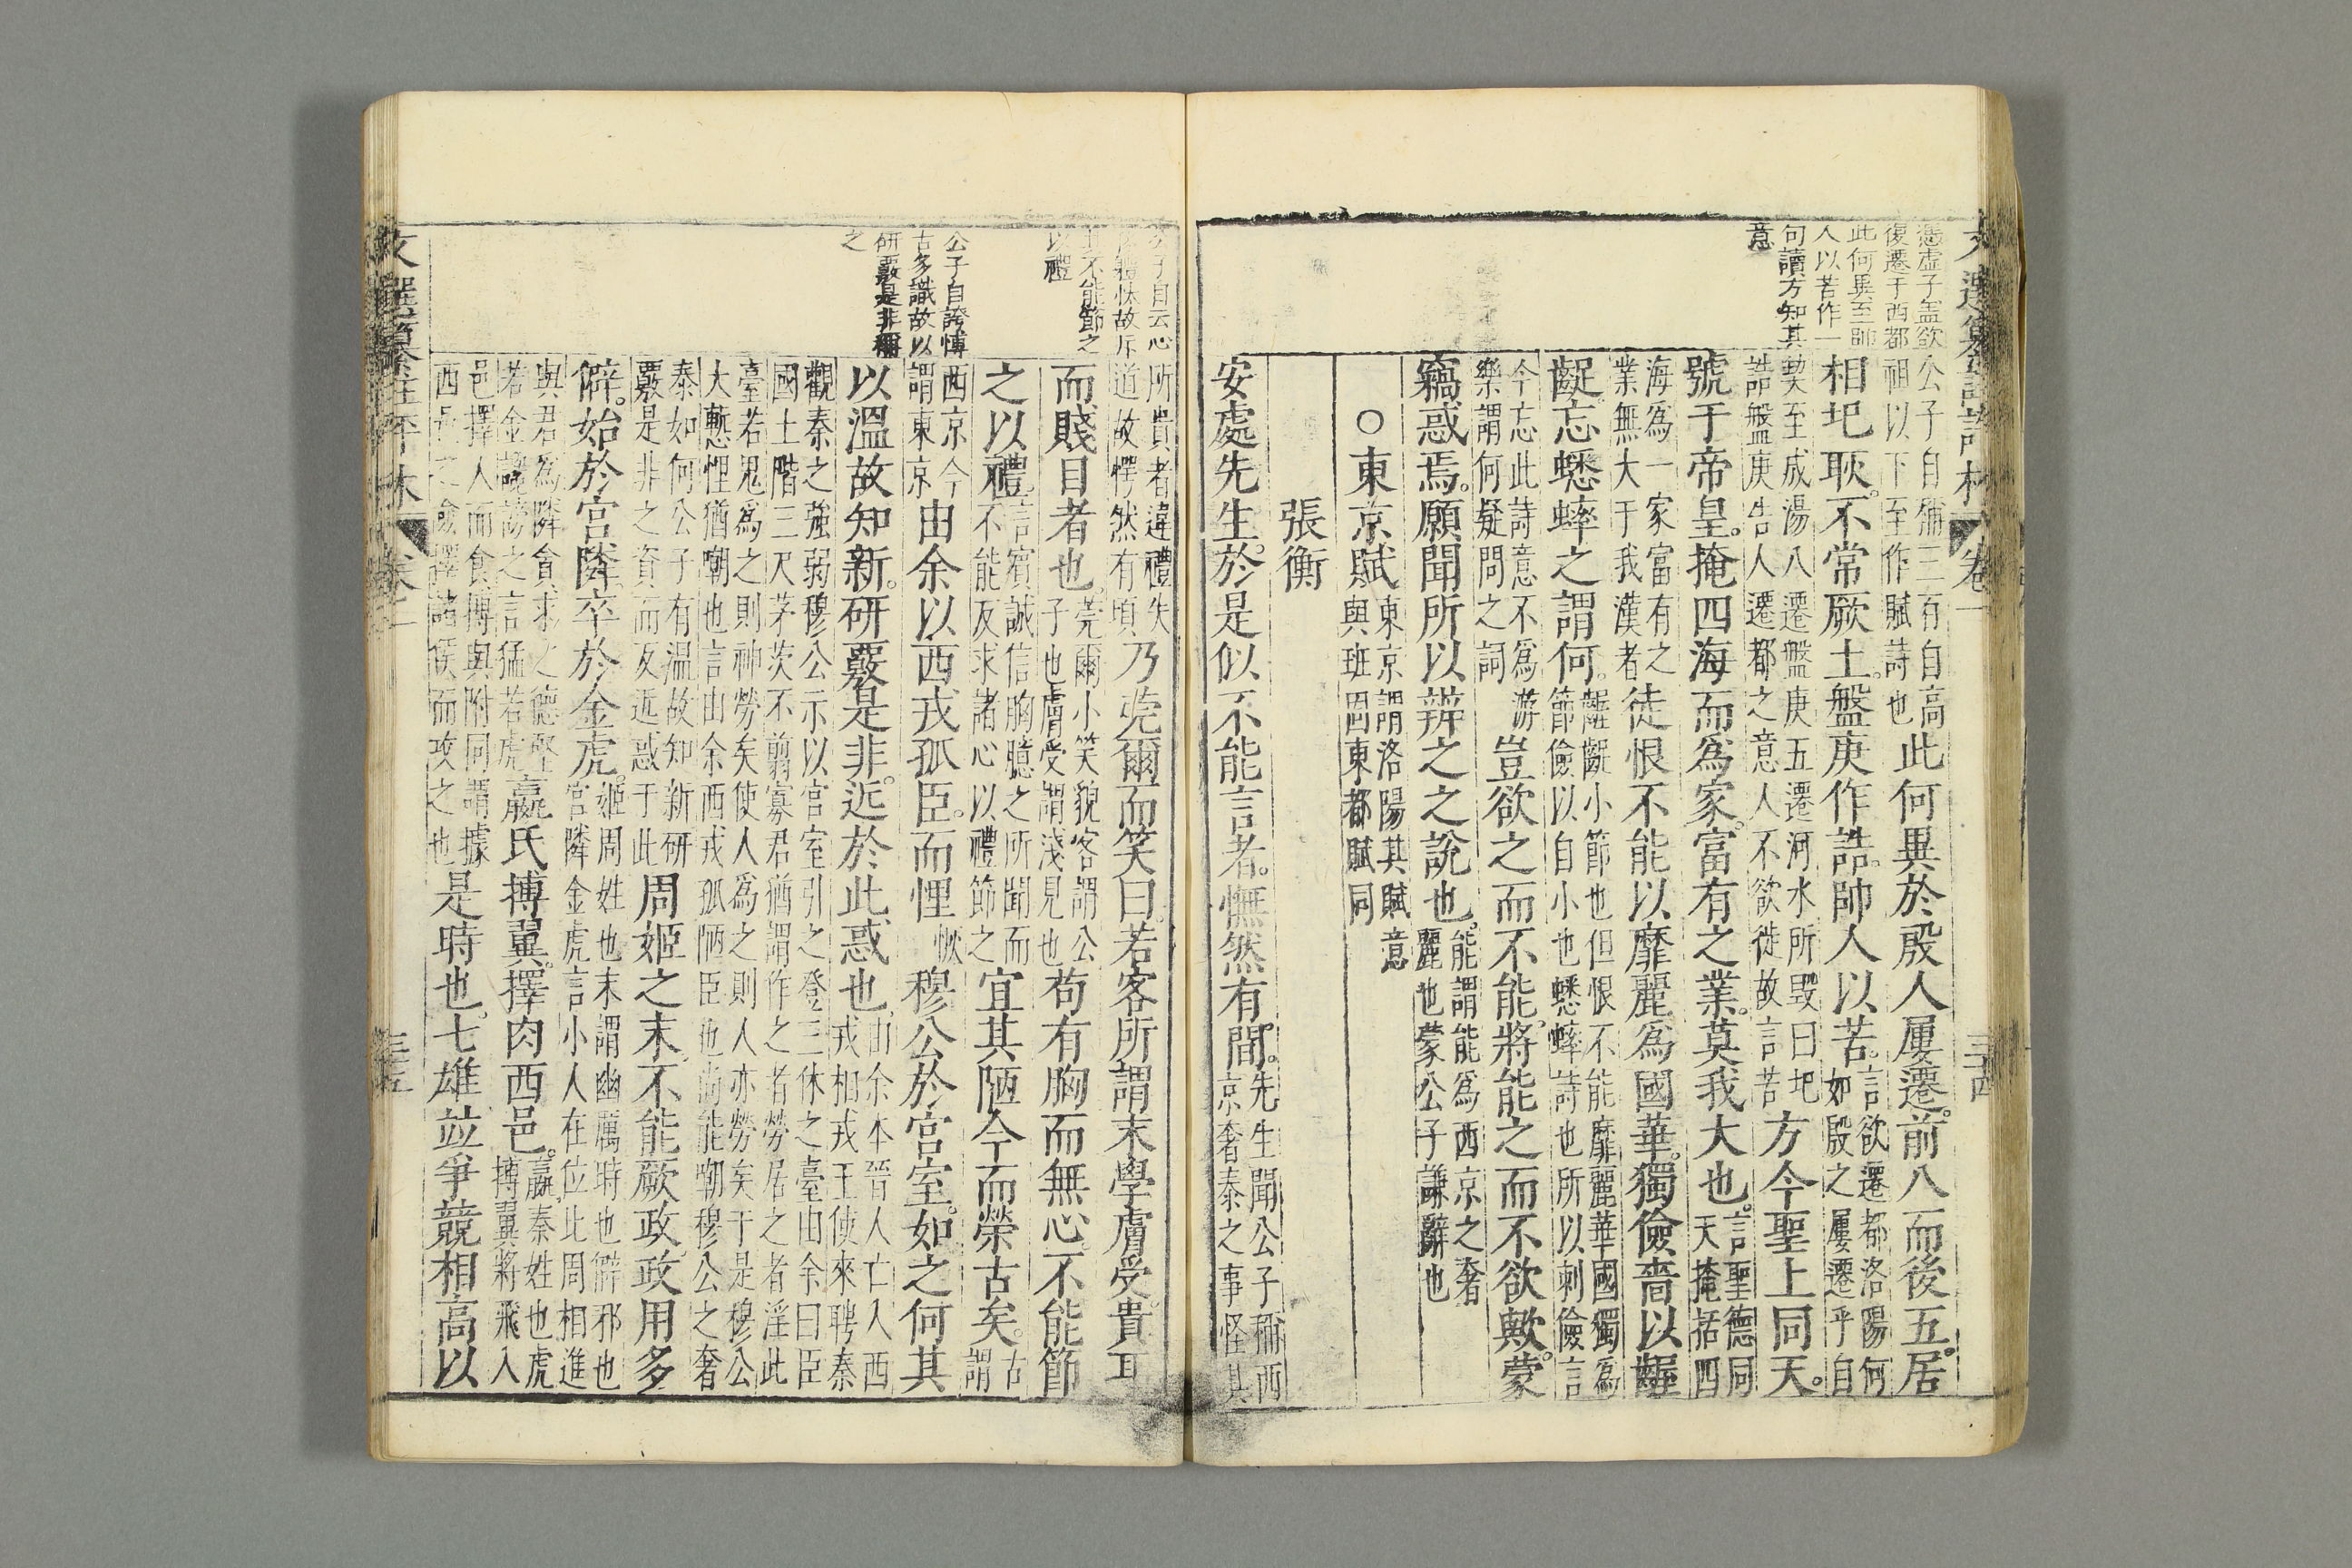 憑虛子盖欲
復遷于西都
此何異至帥
人以苦作一
句讀方知其
意
公子自稱三百自高
祖以下至作賦詩也
此何異於殷人屢遷。前八而後五。居
相圯耿。不常厥土。盤庚作誥。帥人以苦。
言欲遷都洛陽何
如殷之屢遷乎自
契至成湯八遷盤庚五遷河水所毀曰圯
誥盤庚告人遷都之意人不欲徙故言苦
方今聖上同天。
號于帝皇。掩四海而爲家。富有之業。莫我大也。
言聖德同
天掩括四
海爲一家富有之
業無大于我漢者
徒恨不能以靡麗爲國華。獨儉嗇以齷
齪。忘蟋蟀之謂何。
齷齪小節也但恨不能靡麗華國獨爲
節儉以自小也蟋蟀詩也所以刺儉言
今忘此詩意不爲游
樂謂何疑問之詞
豈欲之而不能。將能之而不欲歟。蒙
竊惑焉。願聞所以辨之之說也。
能謂能爲西京之奢
麗也蒙公子謙辭也
○東京賦
東京謂洛陽其賦意
與班固東都賦同
張衡
安處先生。於是似不能言者。憮然有間。
先生聞公子稱西
京奢泰之事怪其
卷一
三十四
公子自云心
其不能節之
以禮
公子自誇博
古多識故以
研覈是非嘲
之
所貴者違禮失
道故愕然有頃
乃莞爾而笑曰。若客所謂末學膚受。貴耳
而賤目者也。
莞爾小笑貌客謂公
子也膚受謂淺見也
苟有胸而無心。不能節
之以禮。
言賓誠信胸臆之所聞而
不能及求諸心以禮節之
宜其陋今而榮古矣。
古
謂
西京今
謂東京
由余以西戎孤臣。而悝
恢
穆公於宮室。如之何其
以溫故知新。研覈是非。近於此惑也。
由余本晉人亡入西
戎相戎王使來聘秦
觀秦之強弱穆公示以宮室引之登三休之臺由余曰臣
國土階三尺茅茨不翦寡君猶謂作之者勞居之者淫此
臺若鬼爲之則神勞矣使人爲之則人亦勞矣于是穆公
大慙悝猶嘲也言由余西戎孤陋臣也尚能嘲穆公之奢
泰如何公子有溫故知新研
覈是非之資而反近惑于此
周姬之末。不能厥政。政用多
僻。始於宮隣。卒於金虎。
姬周姓也末謂幽厲時也僻邪也
宮隣金虎言小人在位此周相進
與君爲隣貪求之德堅
若金讒謗之言猛若虎
嬴氏搏翼。擇肉西邑。
嬴秦姓也虎
搏翼將飛入
邑擇人而食搏與附同謂據
西邑之險擇諸侯而攻之也
是時也。七雄竝爭。競相高以
三十五